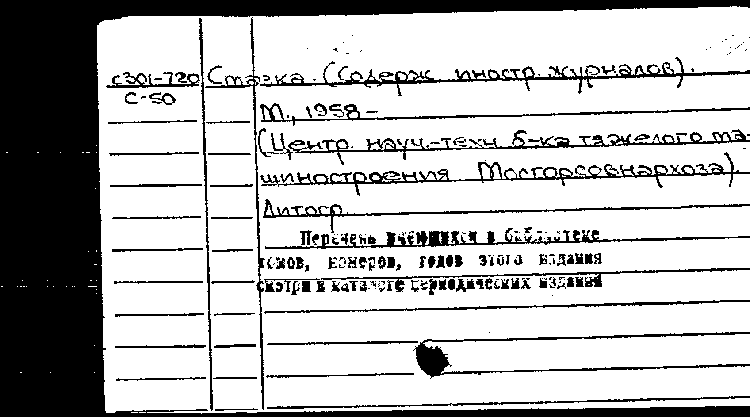 с301-720 Смазка. (Содерж. иностр. журналов).
С-50
М., 1958-
(Центр. науч.-техн. б-ка тяжелого ма-
шиностроения Мосгорсовнархоза).
Литогр.
Перечень имеющихся в библиотеке
томов, номеров, годов этого издания
смотри в каталоге периодических изданий